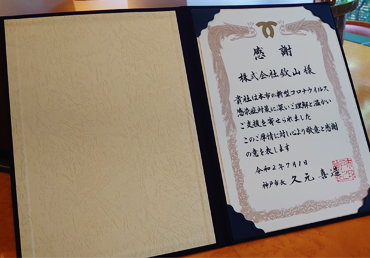 感謝
株式会社欽山様
貴社は本市の新型コロナウイルス
感染症対策に深いご理解と温かい
ご支援を寄せられました
このご厚情に対し心より敬意と感謝
の意を表します
令和2年7月1日
神戸市長 久元喜造